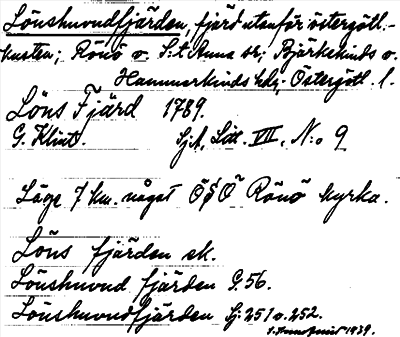 Lönshuvudfjärden, fjärd utanför östergötl.-
kusten; Rönö o. S:t Anna sk; Björkekinds o.
Hammarkinds hdr Östergötl. l.
Löns Fjärd 1789.
G. Klint. Sj.A, Litt. VII, N:o 9
Läge 7 km. något Ö§Ö Rönö kyrka.
Löns fjärden ek.
Lönshuvud fjärden G. 56.
Lönshuvudfjärden Sj: 251 o. 252.
1939.